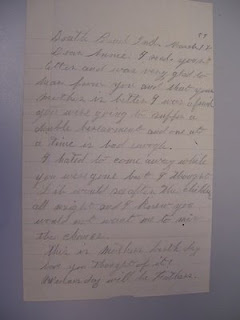 89
South Bend Ind. March 12
Dear Annie. I rec'd your
letter and was very glad to
hear from you and that your
mother is better I was afraid
you were going to suffer a
double bereavement and one at
a time is bad enough.
I hated to come away while
you were gone but I thought
I would
all right and I knew you
would not want me to miss
the chance.
This is Mothers birth day
have you thought of it?
day will be Fathers.